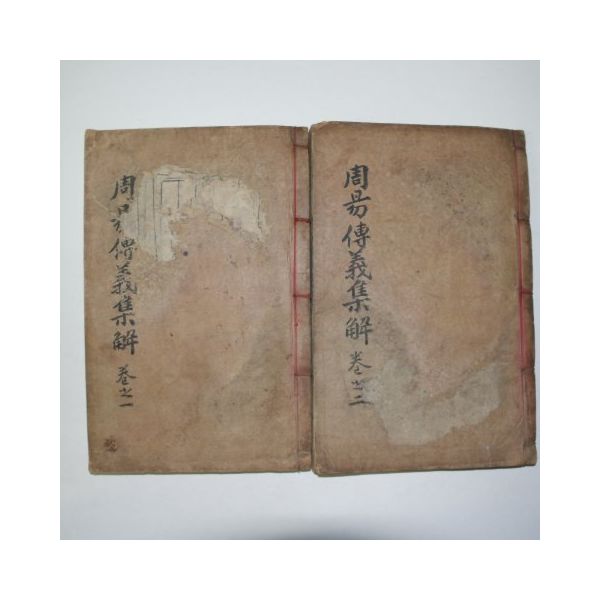 周易傳義集解 卷之二
周易傳義集解 卷之一